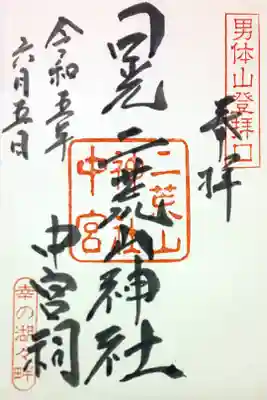 男体山登拝口
奉拝
日光二荒山神社
中宮祠
二荒山
神社
中宮
令和五年
六月五日
幸の湖々畔